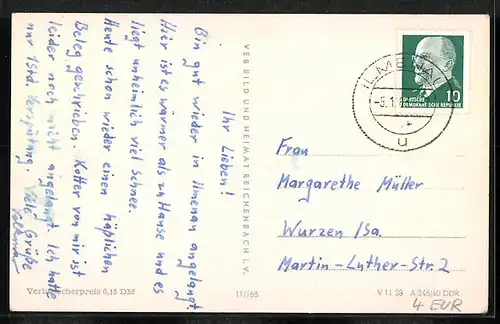 Ihr Lieben!
Bin gut wieder in Ilmenau angelangt.
Hier ist es wärmer als zu Hause und es
liegt unheimlich viel Schnee.
Heute schon wieder einen häßlichen
Beleg geschrieben. Koffer von mir ist
leider noch nicht angelangt. Ich hatte
nur 1 Std. Verspätung. Viele Grüße
VEB BILD UND HEIMAT REICHENBACH i. V.
ILMENAU
u
10
DEUTSCHE
DEMOKRATISCHE REPUBLIK
Frau
Margarethe Müller
Wurzen /Sa.
Martin-Luther-Str. 2
Verbraucherpreis 0,15 DM
11/165
V 11 28 A 246/60 DDR
4 EUR